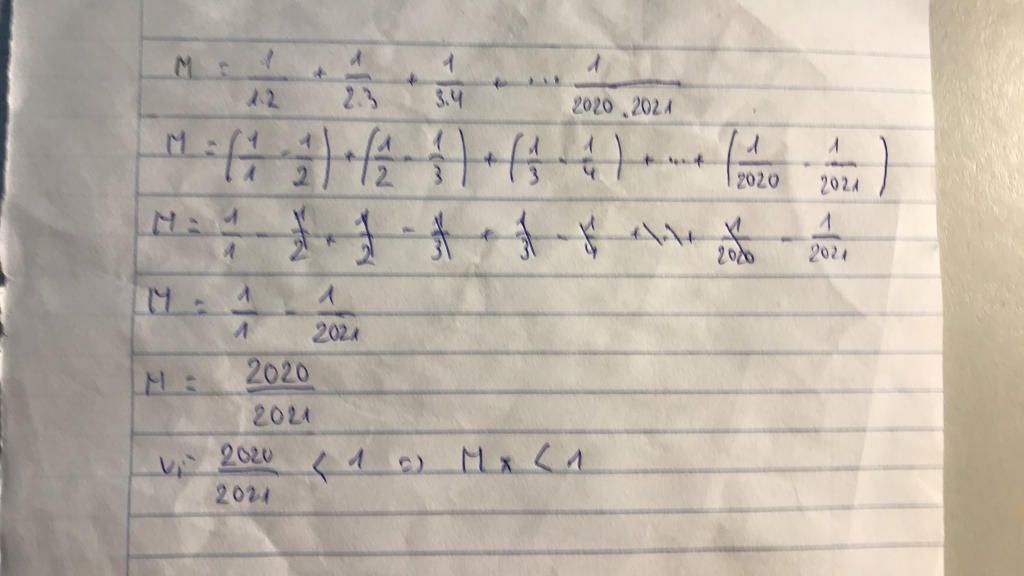 M = 1/1.2 + 1/2.3 + 1/3.4 + ... 1/2020.2021
M = (1/1 - 1/2) + (1/2 - 1/3) + (1/3 - 1/4) + ... + (1/2020 - 1/2021)
M = 1/1 - 1/2 + 1/2 - 1/3 + 1/3 - 1/4 + ... + 1/2020 - 1/2021
M = 1/1 - 1/2021
M = 2020/2021
Vì 2020/2021 < 1 => M < 1